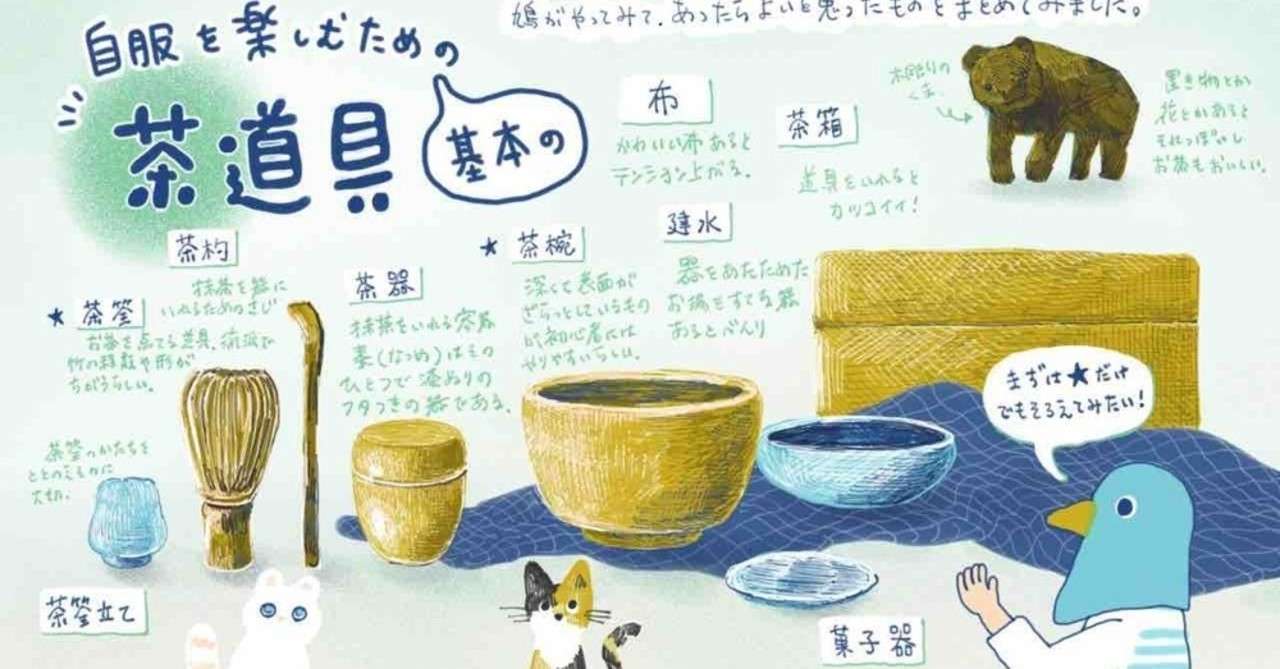 鳩がやってみて、あったらよいと思ったものをまとめてみました。
自服を楽しむための
茶道具
基本の
布
かわいい布あると
テンション上がる。
茶箱
道具をいれると
カッコイイ!
木彫りの
くま
置き物とか
花とかあると
それっぽいし
お茶もおいしい。
茶杓
抹茶を器に
いれるためのさじ
★ 茶筌
お茶を点てる道具。流派で
竹の種類や形が
ちがうらしい。
茶器
抹茶をいれる容器
棗(なつめ)はその
ひとつで漆ぬりの
フタつきの器である。
★ 茶椀
深くて表面が
ざらっとしているもの
が初心者には
やりやすいらしい。
建水
器をあたためた
お湯をすてる器
あるとべんり
まずは★だけ
でもそろえてみたい!
茶筌のかたちを
ととのえるのに
大切。
茶筌立て
菓子器